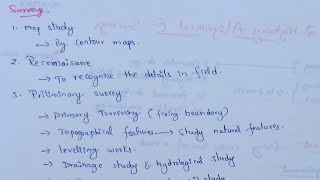 Survey:
1. map study
→ By contour maps.
2. Reconaisance
→ To recognise the details in field.
3. Priliminary survey
→ Primary Traversing (fixing boundary)
→ Topographical features → Study natural features.
→ levelling works.
→ Drainage study & hydrological study
study